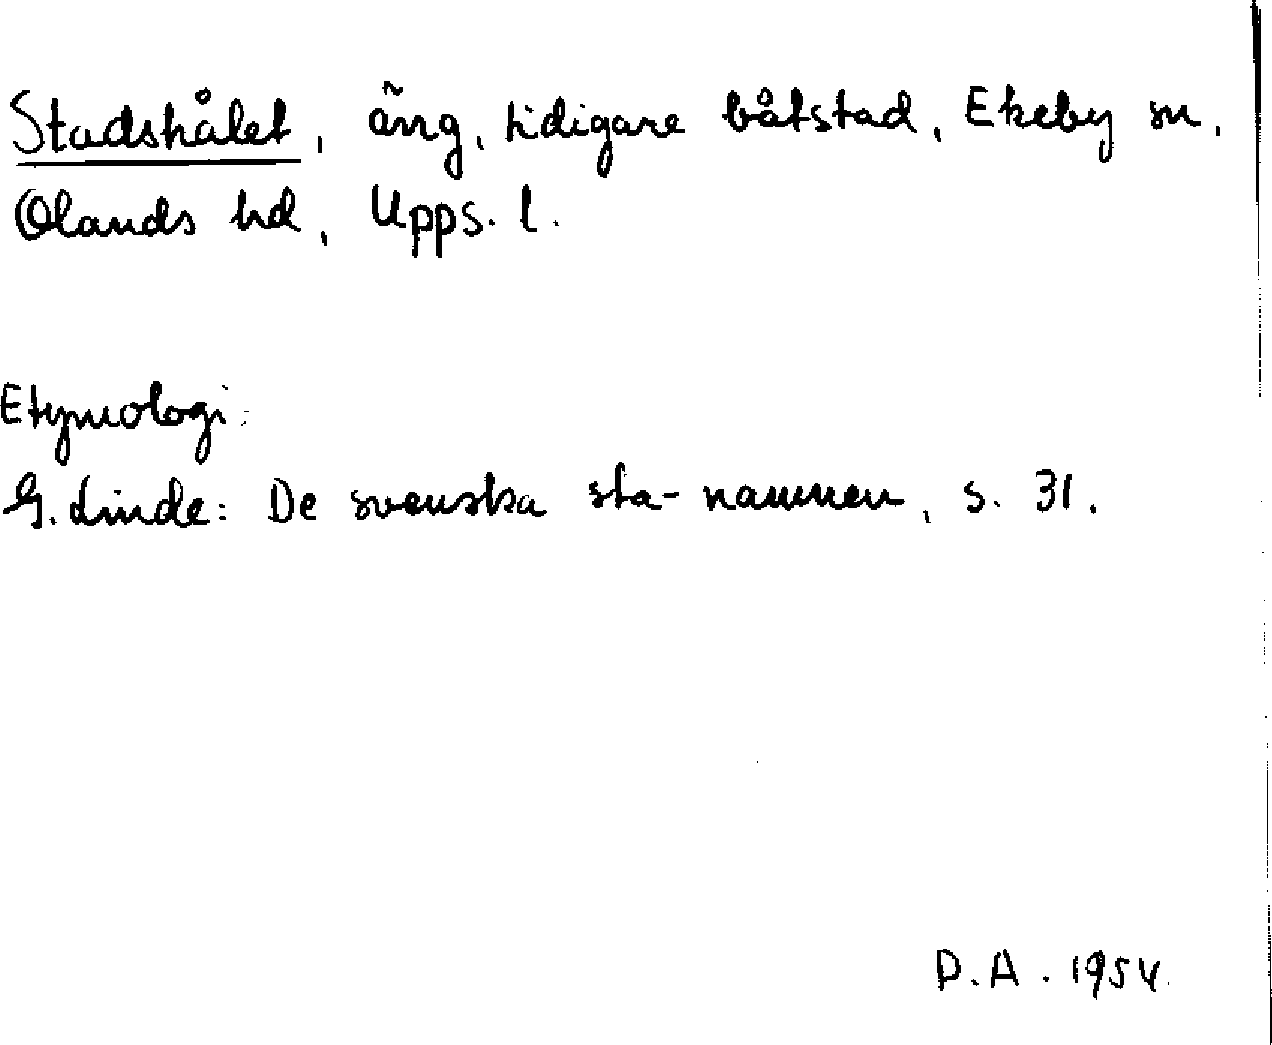 Stadshålet, äng, tidigare båtstad, Ekeby sn,
Olands hd, Upps. l.
Etymologi:
G. Linde: De svenska sta-namnen, s. 31.
D.A. 1954.